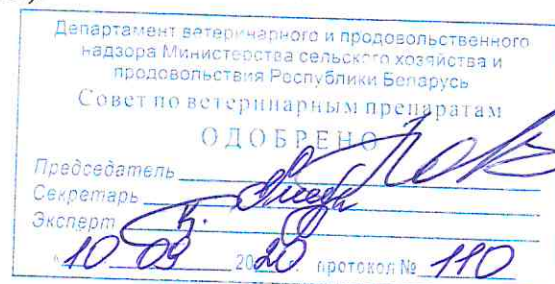 Департамент ветеринарного и продовольственного
надзора Министерства сельского хозяйства и
продовольствия Республики Беларусь
Совет по ветеринарным препаратам
ОДОБРЕНО
Председатель
Секретарь
Эксперт
"10 09 2020 г. протокол № 110